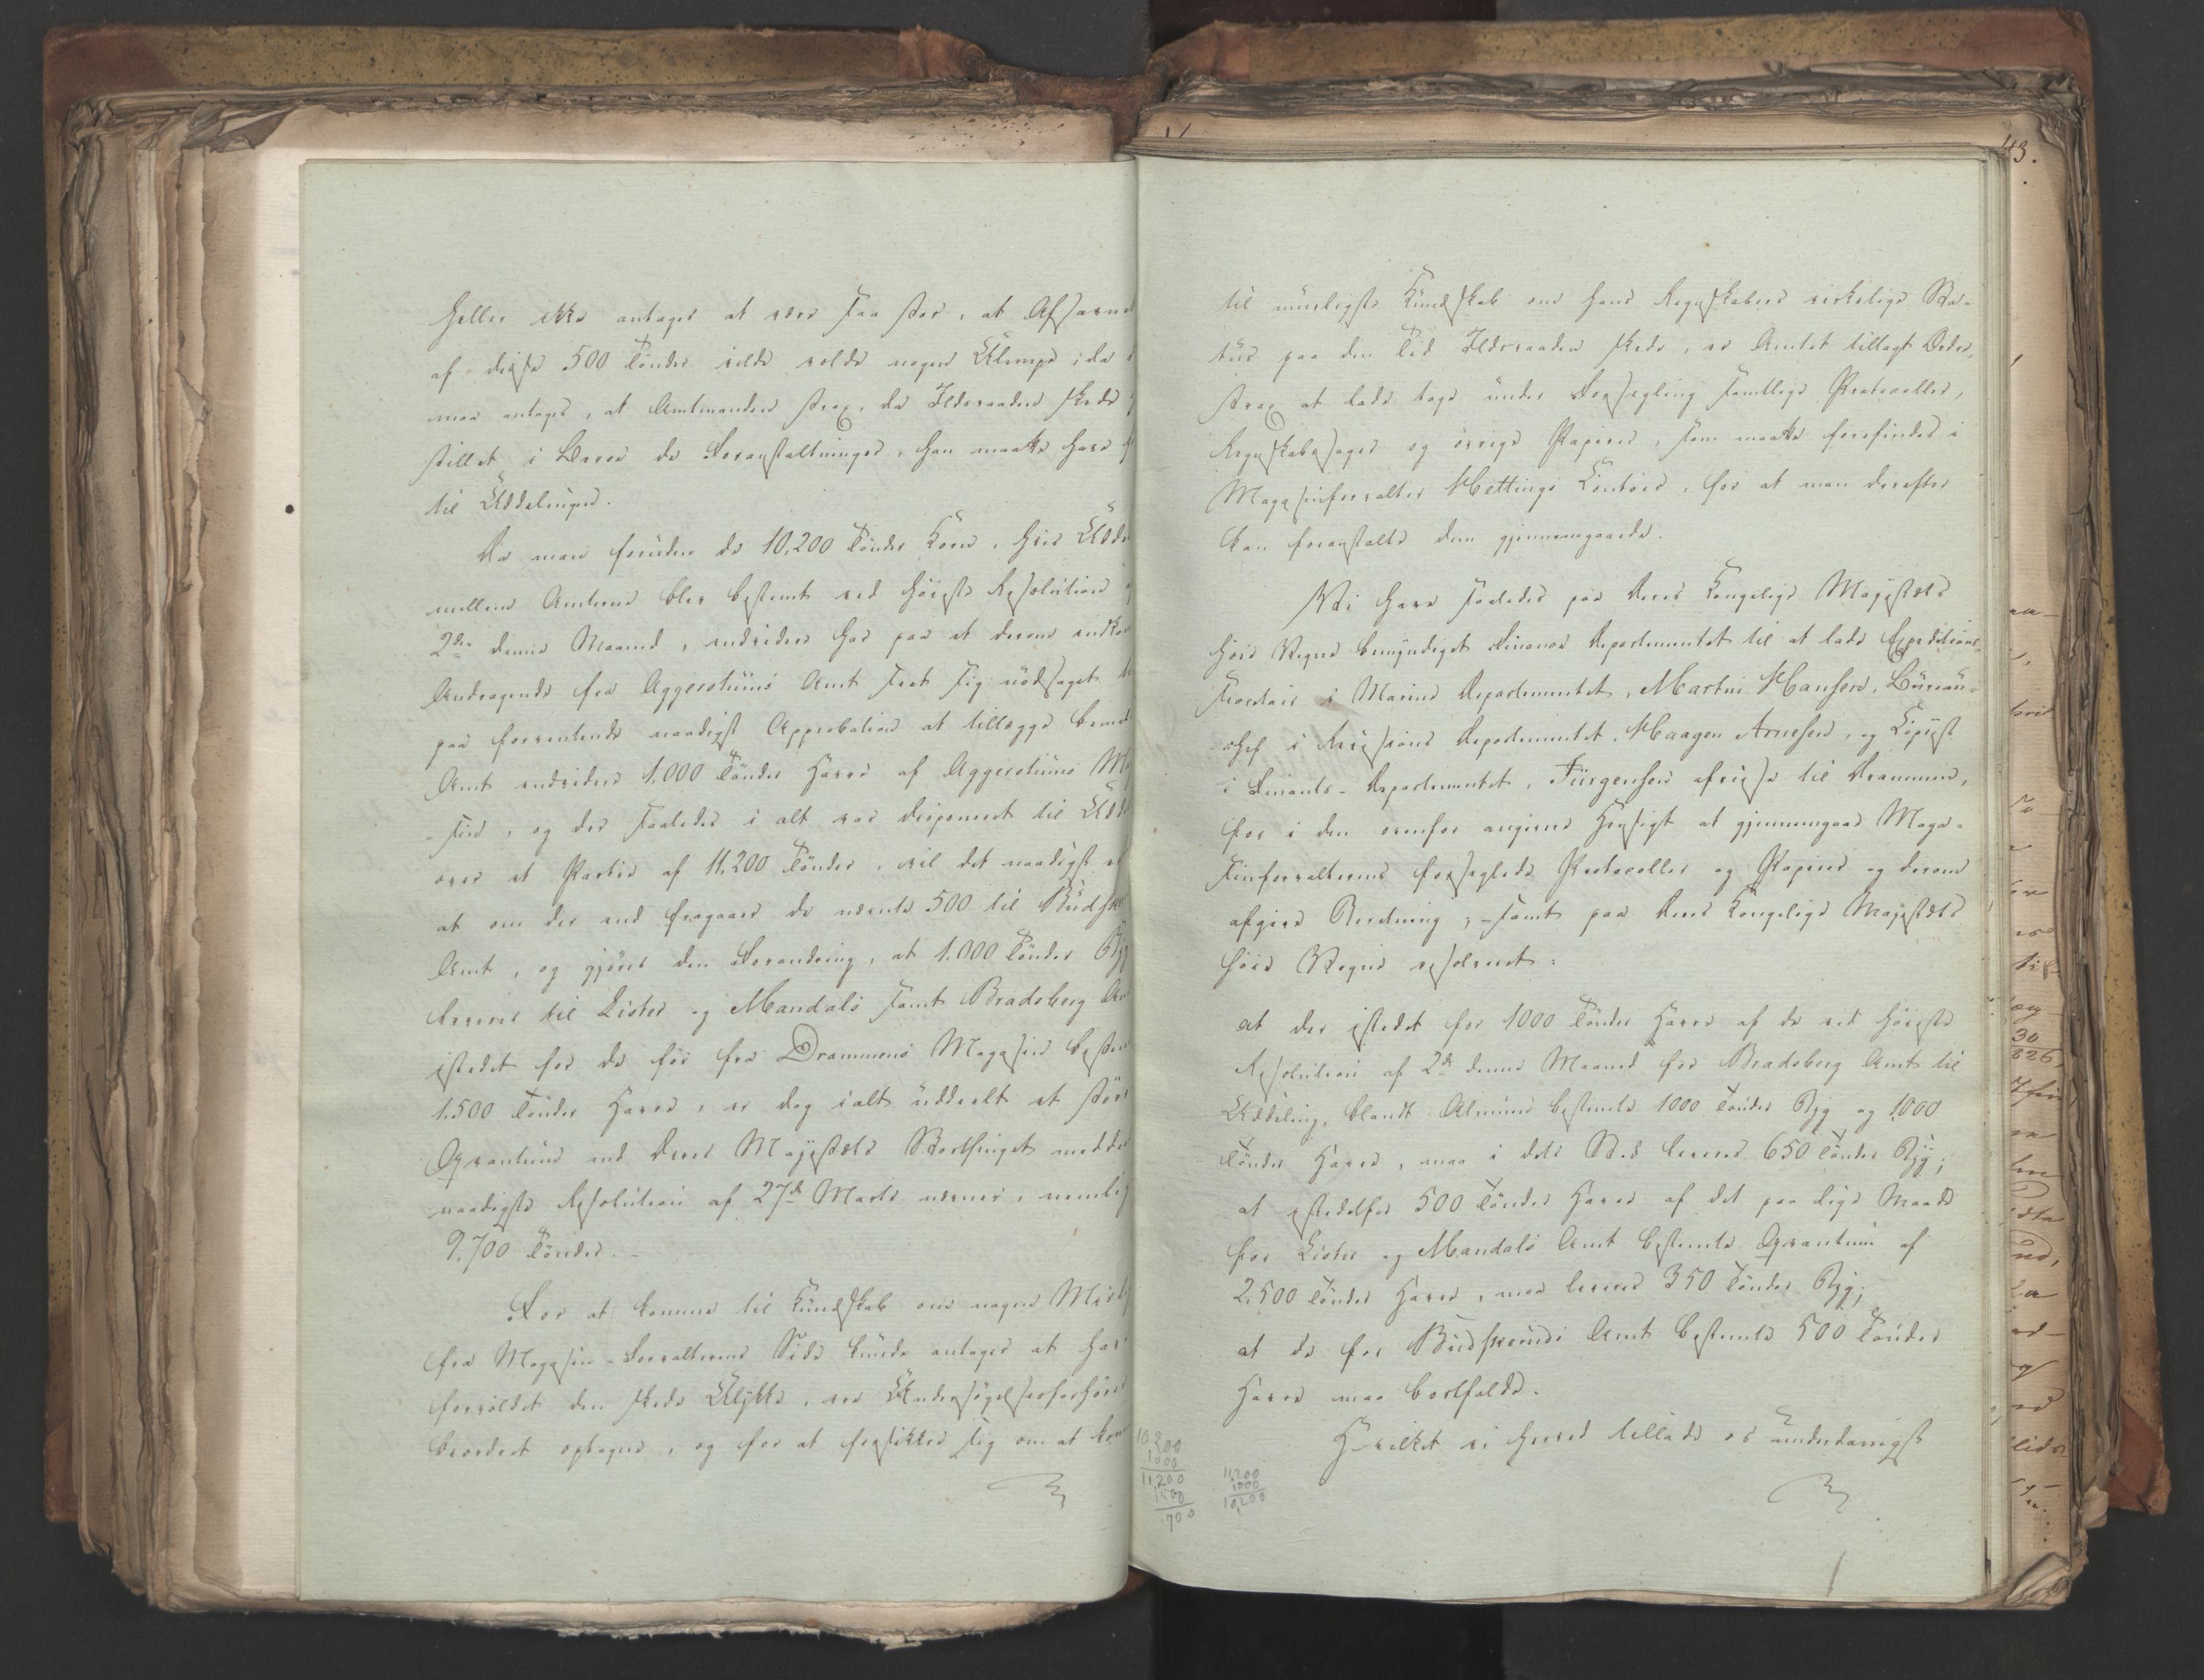 heller ikke antages at være saa stor, at Afsavne
af disse 500 Tønder vilde volde nogen Ulempe, da
maa antages, at Amtmanden strax, da Ildsvaaden skede
stillet i Bero de Foranstaltninger, han maatte have
til Uddelingen.
Da man foruden de 10,200 Tønder Korn, hvis Udde
mellem Amterne blev bestemt ved høieste Resolution
2den denne Maaned, endvidere har paa et derom indkom
Andragende fra Aggershuus Amt seet sig nødsaget
paa forventende naadigst Approbation at tillægge
Amt endvidere 1,000 Tønder Havre af Aggershuus Ma
-sin, og der saaledes i alt var disponeret til Udde
over et Partie af 11,200 Tønder, vil det naadigst
at om der end fragaaer de nævnte 500 til Budsker
Amt, og gjøres den Forandring, at 1,000 Tønder Byg
leveres til Lister og Mandals samt Bradsberg Am
istedet for de før fra Drammens Magasin bestem
1,500 Tønder Havre, er dog ialt uddeelt et større
Qvantum end Deres Majestæts Storthinget medde
naadigste Resolution af 27de Marts nævner, nemlig
9,700 Tønder. -
For at komme til Kundskab om nogen Mislig
fra Magasin-Forvalterens Side kunde antages at have
forvoldet den skede Ulykke, var Undersøgelsesforhører
beordret optagne, og for at forsikkre sig om at kom
10,200
1000
11,200
1500
9700
43.
til nøieligste Kundskab om hans Regnskabers virkelige Sta-
tus paa den Tid Ildsvaaden skede, er Amtet tillagt Ordre,
strax at lade tage under Forsegling samtlige Protocoller,
Regnskabssager og øvrige Papirer, som maatte forefindes i
Magasinforvalter Hettings Contoir, for at man derefter
kan foranstalte dem gjennemgaaede.
Vi have saaledes paa Deres Kongelige Majestæts
høie Vegne bemyndiget Finance Departementet til at lade Expeditions-
secretair i Marine Departementet, Martin Hansen, Bureau-
chef i Revisions Departementet, Haagen Arnesen, og Copiist
i Finants-Departementet, Jürgensen afreise til Drammen,
for i den ovenfor angivne Hensigt at gjennemgaae Maga-
sinforvalterens forseglede Protocoller og Papirer og derom
afgive Beretning; - samt paa Deres Kongelige Majestæts
høie Vegne resolveret:
at der istedet for 1000 Tønder Havre af de ved høieste
Resolution af 2de denne Maaned for Bradsberg Amt til
Uddeling blandt Almuen bestemte 1000 Tønder Byg og 1000
Tønder Havre, maa i dets Sted leveres 650 Tønder Byg;
at istedetfor 500 Tønder Havre af det paa lige Maade
for Lister og Mandals Amt bestemte Qvantum af
2,500 Tønder Havre, maa leveres 350 Tønder Byg;
at de for Budskeruds Amt bestemte 500 Tønder
Havre maa bortfalde.
Hvilket vi herved tillade os underdanigst
11,200
1000
10,200